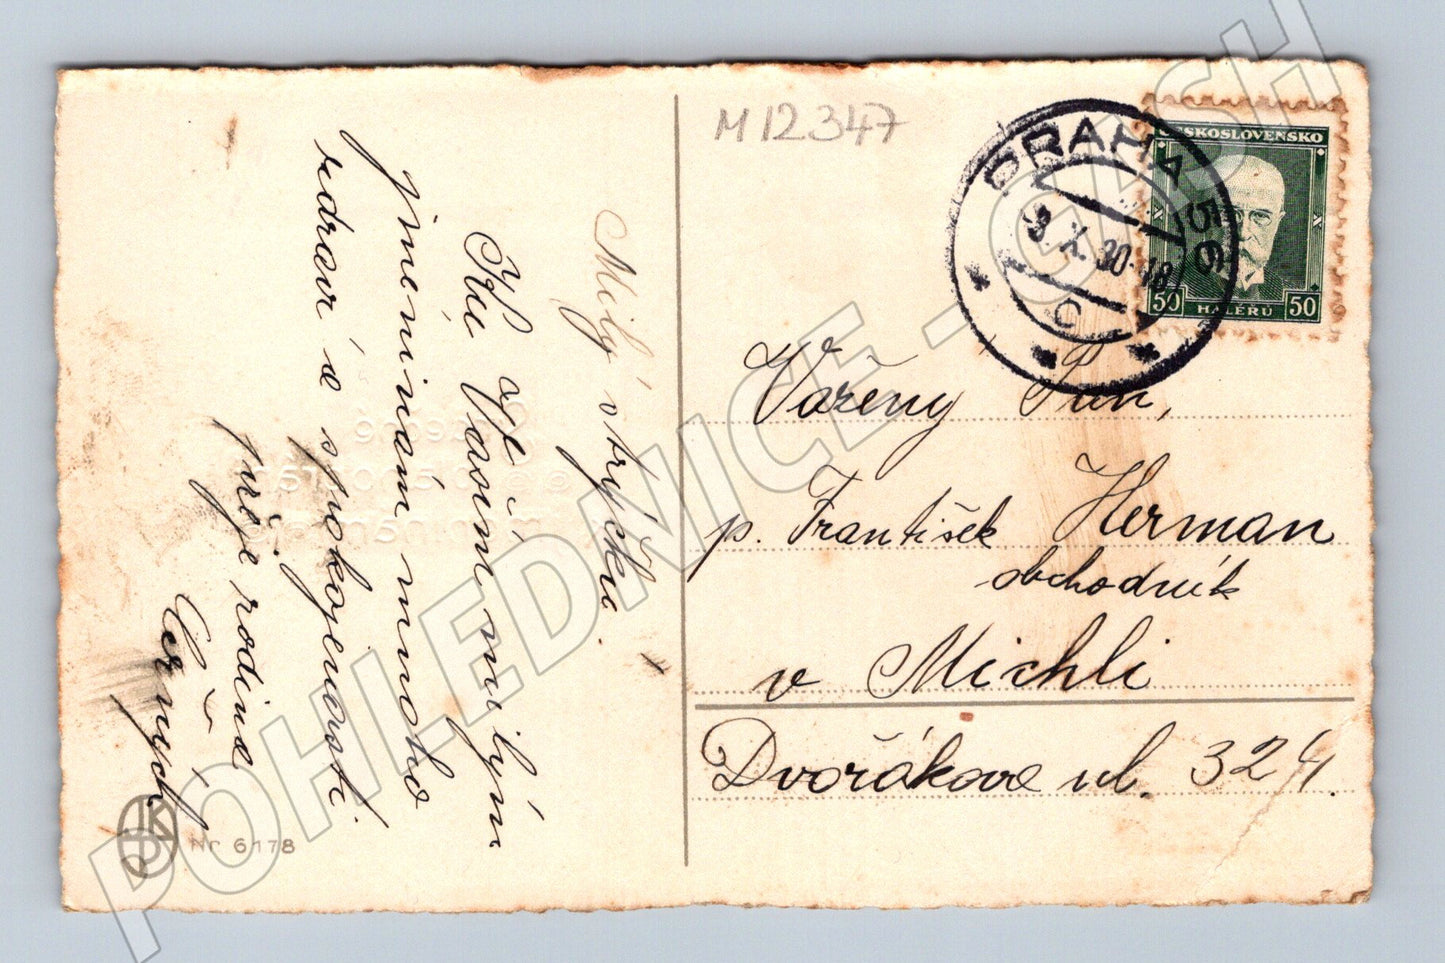 M12347
PRAHA 56
3. X. 30-18
C
ČESKOSLOVENSKO
50 HALÉŘŮ 50
Milý strýčku.
Ku Vašim milým
jmeninám mnoho
zdraví a spokojenosti
přeje rodina
Černých
Vážený Pan,
p. František Herman
obchodník
v Michli
Dvořákova ul. 324.
Nr 6178
POHLEDNICE - CASH